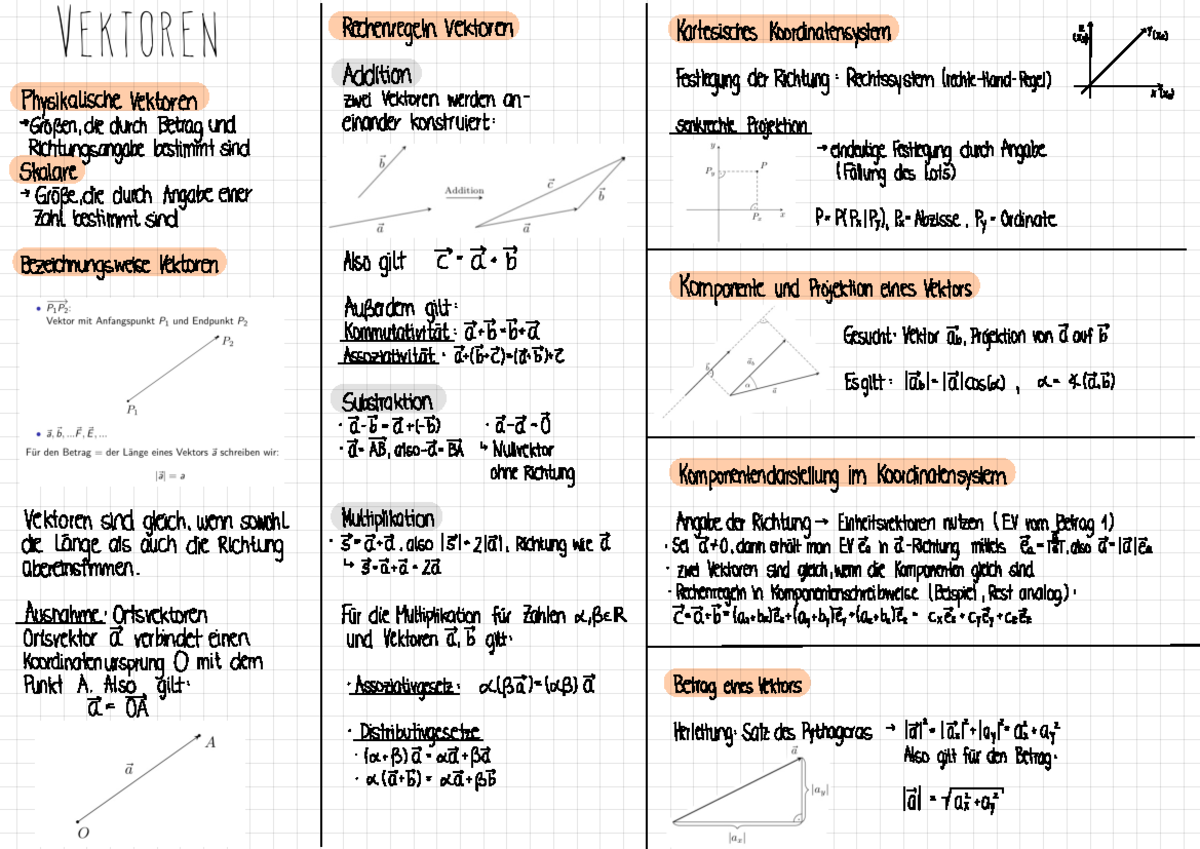 VEKTOREN
Physikalische Vektoren
→Größen, die durch Betrag und
Richtungsangabe bestimmt sind
Skalare
→ Größe, die durch Angabe einer
Zahl bestimmt sind
Bezeichnungsweise Vektoren
• $\overrightarrow{P_1P_2}$:
Vektor mit Anfangspunkt P₁ und Endpunkt P₂
P₂
P₁
• a⃗, b⃗, ...F⃗, E⃗, ...
Für den Betrag = der Länge eines Vektors a⃗ schreiben wir:
|a⃗| = a
Vektoren sind gleich, wenn sowohl
die Länge als auch die Richtung
übereinstimmen.
Ausnahme: Ortsvektoren
Ortsvektor a⃗ verbindet einen
Koordinatenursprung O mit dem
Punkt A. Also gilt:
a⃗ = $\overrightarrow{OA}$
A
a⃗
O
Rechenregeln Vektoren
Addition
zwei Vektoren werden an-
einander konstruiert:
b⃗
a⃗
Addition
c⃗
b⃗
a⃗
Also gilt c⃗ = a⃗ + b⃗
Außerdem gilt:
Kommutativität: a⃗+b⃗=b⃗+a⃗
Assoziativität: a⃗+(b⃗+c⃗)=(a⃗+b⃗)+c⃗
Substraktion
· a⃗-b⃗ = a⃗+(-b⃗) · a⃗-a⃗=0⃗
· a⃗= $\overrightarrow{AB}$, also -a⃗= $\overrightarrow{BA}$ ↳ Nullvektor
ohne Richtung
Multiplikation
· s⃗=a⃗+a⃗, also |s⃗|=2|a⃗|, Richtung wie a⃗
↳ s⃗=a⃗+a⃗=2a⃗
Für die Multiplikation für Zahlen α,β∈R
und Vektoren a⃗, b⃗ gilt:
· Assoziativgesetz: α(βa⃗)=(αβ)a⃗
· Distributivgesetze
· (α+β)a⃗=αa⃗+βa⃗
· α(a⃗+b⃗) = αa⃗+βb⃗
Kartesisches Koordinatensystem
Festlegung der Richtung: Rechtssystem (rechte-Hand-Regel)
senkrechte Projektion
y
P_y
P
P_x
x
→eindeutige Festlegung durch Angabe
(Fällung des Lots)
P= P(Pₓ|P_y), Pₓ= Abzisse, P_y= Ordinate
Komponente und Projektion eines Vektors
α
a⃗
Gesucht: Vektor a⃗_b, Projektion von a⃗ auf b⃗
Es gilt: |a⃗_b|=|a⃗|cos(α), α= ∢(a⃗,b⃗)
Komponentendarstellung im Koordinatensystem
Angabe der Richtung → Einheitsvektoren nutzen (EV vom Betrag 1)
· Sei a⃗≠0, dann erhält man EV e⃗ₐ in a⃗-Richtung mittels e⃗ₐ= a⃗/|a⃗|, also a⃗=|a⃗|e⃗ₐ
· zwei Vektoren sind gleich, wenn die Komponenten gleich sind
· Rechenregeln in Komponentenschreibweise (Beispiel, Rest analog):
c⃗=a⃗+b⃗=(aₓ+bₓ)e⃗ₓ+(a_y+b_y)e⃗_y+(a_z+b_z)e⃗_z = cₓe⃗ₓ+c_ye⃗_y+c_ze⃗_z
Betrag eines Vektors
Herleitung: Satz des Pythagoras → |a⃗|²=|a⃗ₓ|²+|a_y|²=aₓ²+a_y²
Also gilt für den Betrag:
|a⃗| = √(aₓ²+a_y²)
a⃗
|a_y|
|aₓ|